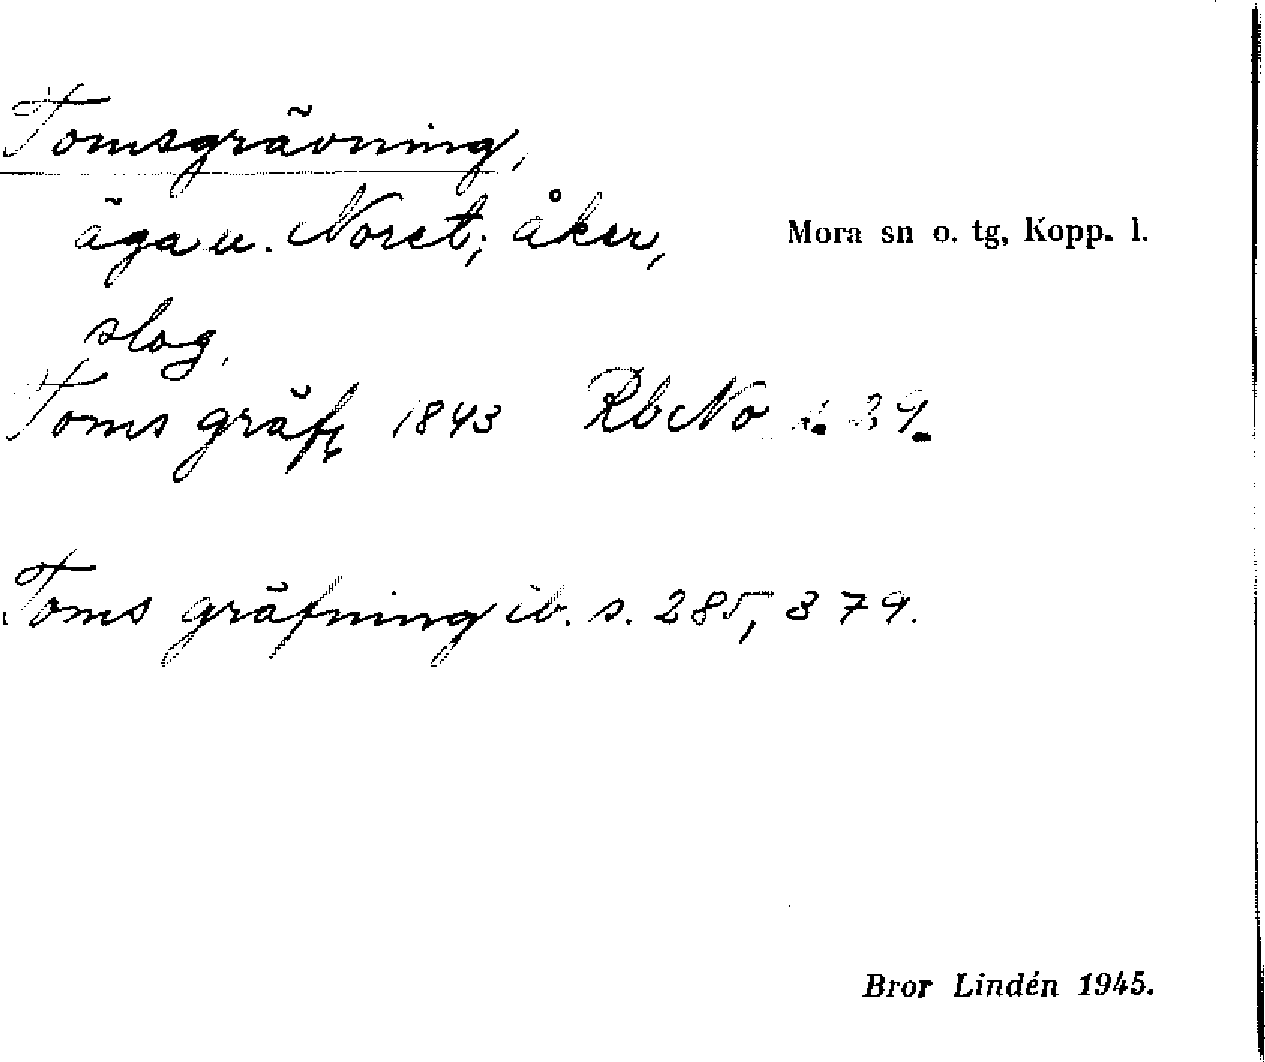 Tomsgrävning,
äga u. Noret; åker,
Mora sn o. tg, Kopp. l.
slog.
Toms gräfn 1843 RbcNo s. 39.
Toms gräfning ib. s. 285, 379.
Bror Lindén 1945.